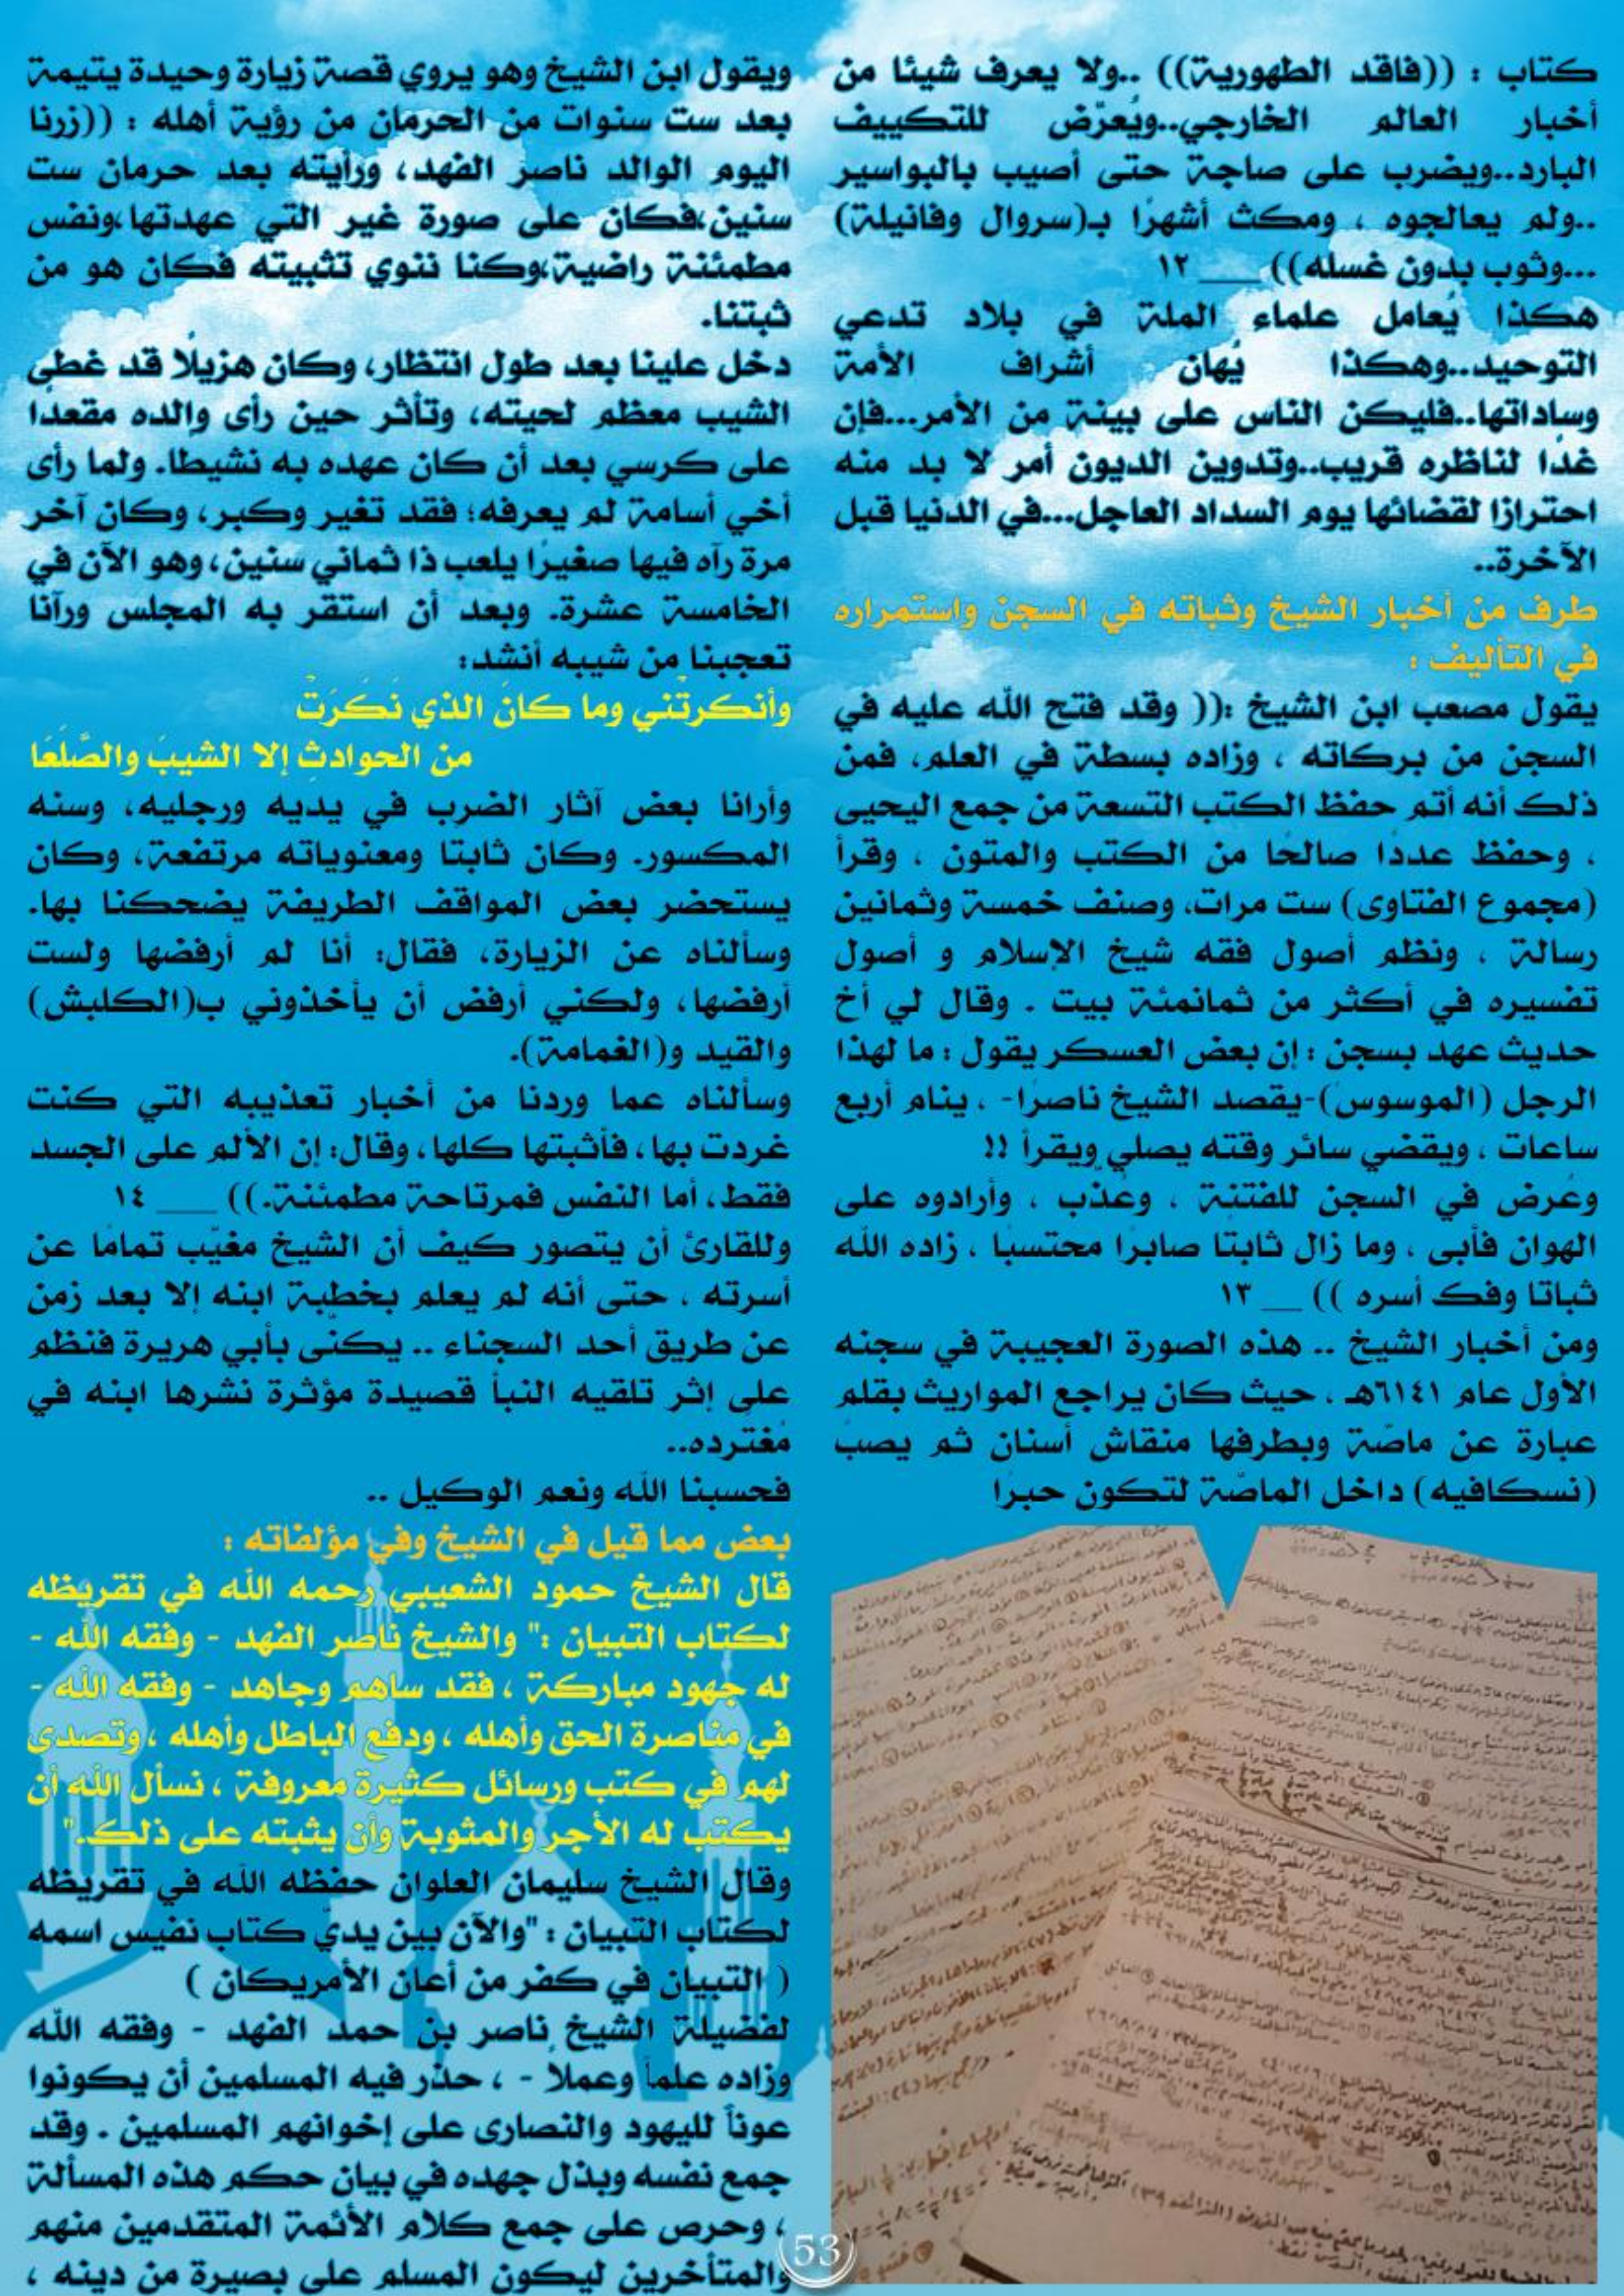 كتاب : ((فاقد الطهورية)) ..ولا يعرف شيئا من
أخبار العالم الخارجي..ويُعرّض للتكييف
البارد..ويضرب على صاجة حتى أصيب بالبواسير
..ولم يعالجوه ، ومكث أشهرًا بـ(سروال وفانيلة)
...وثوب بدون غسله)) ___ ١٢
هكذا يُعامل علماء الملة في بلاد تدعي
التوحيد..وهكذا يُهان أشراف الأمة
وساداتها..فليكن الناس على بينة من الأمر...فإن
غدًا لناظره قريب..وتدوين الديون أمر لا بد منه
احترازا لقضائها يوم السداد العاجل...في الدنيا قبل
الآخرة..
طرف من أخبار الشيخ وثباته في السجن واستمراره
في التأليف :
يقول مصعب ابن الشيخ :(( وقد فتح الله عليه في
السجن من بركاته ، وزاده بسطة في العلم، فمن
ذلك أنه أتم حفظ الكتب التسعة من جمع اليحيى
، وحفظ عددًا صالحًا من الكتب والمتون ، وقرأ
(مجموع الفتاوى) ست مرات، وصنف خمسة وثمانين
رسالة ، ونظم أصول فقه شيخ الإسلام و أصول
تفسيره في أكثر من ثمانمئة بيت . وقال لي أخ
حديث عهد بسجن : إن بعض العسكر يقول : ما لهذا
الرجل (الموسوس)-يقصد الشيخ ناصرًا- ، ينام أربع
ساعات ، ويقضي سائر وقته يصلي ويقرأ !!
وعُرض في السجن للفتنة ، وعُذّب ، وأرادوه على
الهوان فأبى ، وما زال ثابتًا صابرًا محتسبًا ، زاده الله
ثباتا وفك أسره )) __ ١٣
ومن أخبار الشيخ .. هذه الصورة العجيبة في سجنه
الأول عام ٦١٤١هـ ، حيث كان يراجع المواريث بقلم
عبارة عن ماصّة وبطرفها منقاش أسنان ثم يصبّ
(نسكافيه) داخل الماصّة لتكون حبرًا
ويقول ابن الشيخ وهو يروي قصة زيارة وحيدة يتيمة
بعد ست سنوات من الحرمان من رؤية أهله : ((زرنا
اليوم الوالد ناصر الفهد، ورأيته بعد حرمان ست
سنين،فكان على صورة غير التي عهدتها،ونفس
مطمئنة راضية،وكنا ننوي تثبيته فكان هو من
ثبتنا.
دخل علينا بعد طول انتظار، وكان هزيلًا قد غطى
الشيب معظم لحيته، وتأثر حين رأى والده مقعدًا
على كرسي بعد أن كان عهده به نشيطا. ولما رأى
أخي أسامة لم يعرفه؛ فقد تغير وكبر، وكان آخر
مرة رآه فيها صغيرًا يلعب ذا ثماني سنين، وهو الآن في
الخامسة عشرة. وبعد أن استقر به المجلس ورآنا
تعجبنا من شيبه أنشد:
وأنكرتْني وما كانَ الذي نَكَرَتْ
من الحوادثِ إلا الشيبَ والصَّلَعَا
وأرانا بعض آثار الضرب في يديه ورجليه، وسنه
المكسور. وكان ثابتًا ومعنوياته مرتفعة، وكان
يستحضر بعض المواقف الطريفة يضحكنا بها.
وسألناه عن الزيارة، فقال: أنا لم أرفضها ولست
أرفضها، ولكني أرفض أن يأخذوني ب(الكلبش)
والقيد و(الغمامة).
وسألناه عما وردنا من أخبار تعذيبه التي كنت
غردت بها، فأثبتها كلها، وقال: إن الألم على الجسد
فقط، أما النفس فمرتاحة مطمئنة.)) ___ ١٤
وللقارئ أن يتصور كيف أن الشيخ مغيّب تمامًا عن
أسرته ، حتى أنه لم يعلم بخطبة ابنه إلا بعد زمن
عن طريق أحد السجناء .. يكنّى بأبي هريرة فنظم
على إثر تلقيه النبأ قصيدة مؤثرة نشرها ابنه في
مُغتّرده..
فحسبنا الله ونعم الوكيل ..
بعض مما قيل في الشيخ وفي مؤلفاته :
قال الشيخ حمود الشعيبي رحمه الله في تقريظه
لكتاب التبيان :" والشيخ ناصر الفهد - وفقه الله -
له جهود مباركة ، فقد ساهم وجاهد - وفقه الله -
في مناصرة الحق وأهله ، ودفع الباطل وأهله ، وتصدى
لهم في كتب ورسائل كثيرة معروفة ، نسأل الله أن
يكتب له الأجر والمثوبة وأن يثبته على ذلك."
وقال الشيخ سليمان العلوان حفظه الله في تقريظه
لكتاب التبيان : "والآن بين يديّ كتاب نفيس اسمه
( التبيان في كفر من أعان الأمريكان )
لفضيلة الشيخ ناصر بن حمد الفهد - وفقه الله
وزاده علماً وعملاً - ، حذّر فيه المسلمين أن يكونوا
عوناً لليهود والنصارى على إخوانهم المسلمين . وقد
جمع نفسه وبذل جهده في بيان حكم هذه المسألة
، وحرص على جمع كلام الأئمة المتقدمين منهم
والمتأخرين ليكون المسلم على بصيرة من دينه ،
53